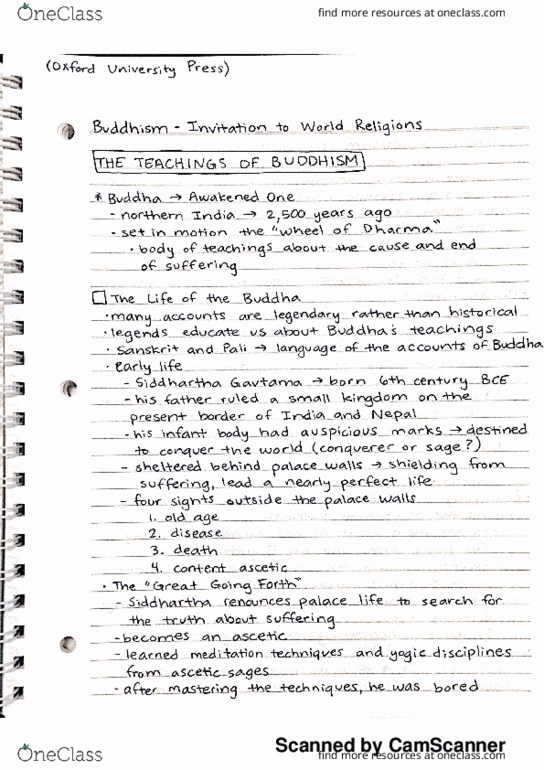 OneClass
find more resources at oneclass.com
(Oxford University Press)
Buddhism - Invitation to World Religions
THE TEACHINGS OF BUDDHISM
* Buddha → Awakened One
- northern India → 2,500 years ago
- set in motion the "wheel of Dharma"
• body of teachings about the cause and end
of suffering
□ The Life of the Buddha
• many accounts are legendary rather than historical
• legends educate us about Buddha's teachings
• Sanskrit and Pali → language of the accounts of Buddha
• Early life
- Siddhartha Gavtama → born 6th century BCE
- his father ruled a small kingdom on the
present border of India and Nepal
- his infant body had auspicious marks → destined
to conquer the world (conquerer or sage?)
- sheltered behind palace walls → shielding from
suffering, lead a nearly perfect life
- four sights outside the palace walls
1. old age
2. disease
3. death
4. content ascetic
• The "Great Going Forth"
- Siddhartha renounces palace life to search for
the truth about suffering
- becomes an ascetic
- learned meditation techniques and yogic disciplines
from ascetic sages
- after mastering the techniques, he was bored
Scanned by CamScanner
OneClass
find more resources at oneclass.com